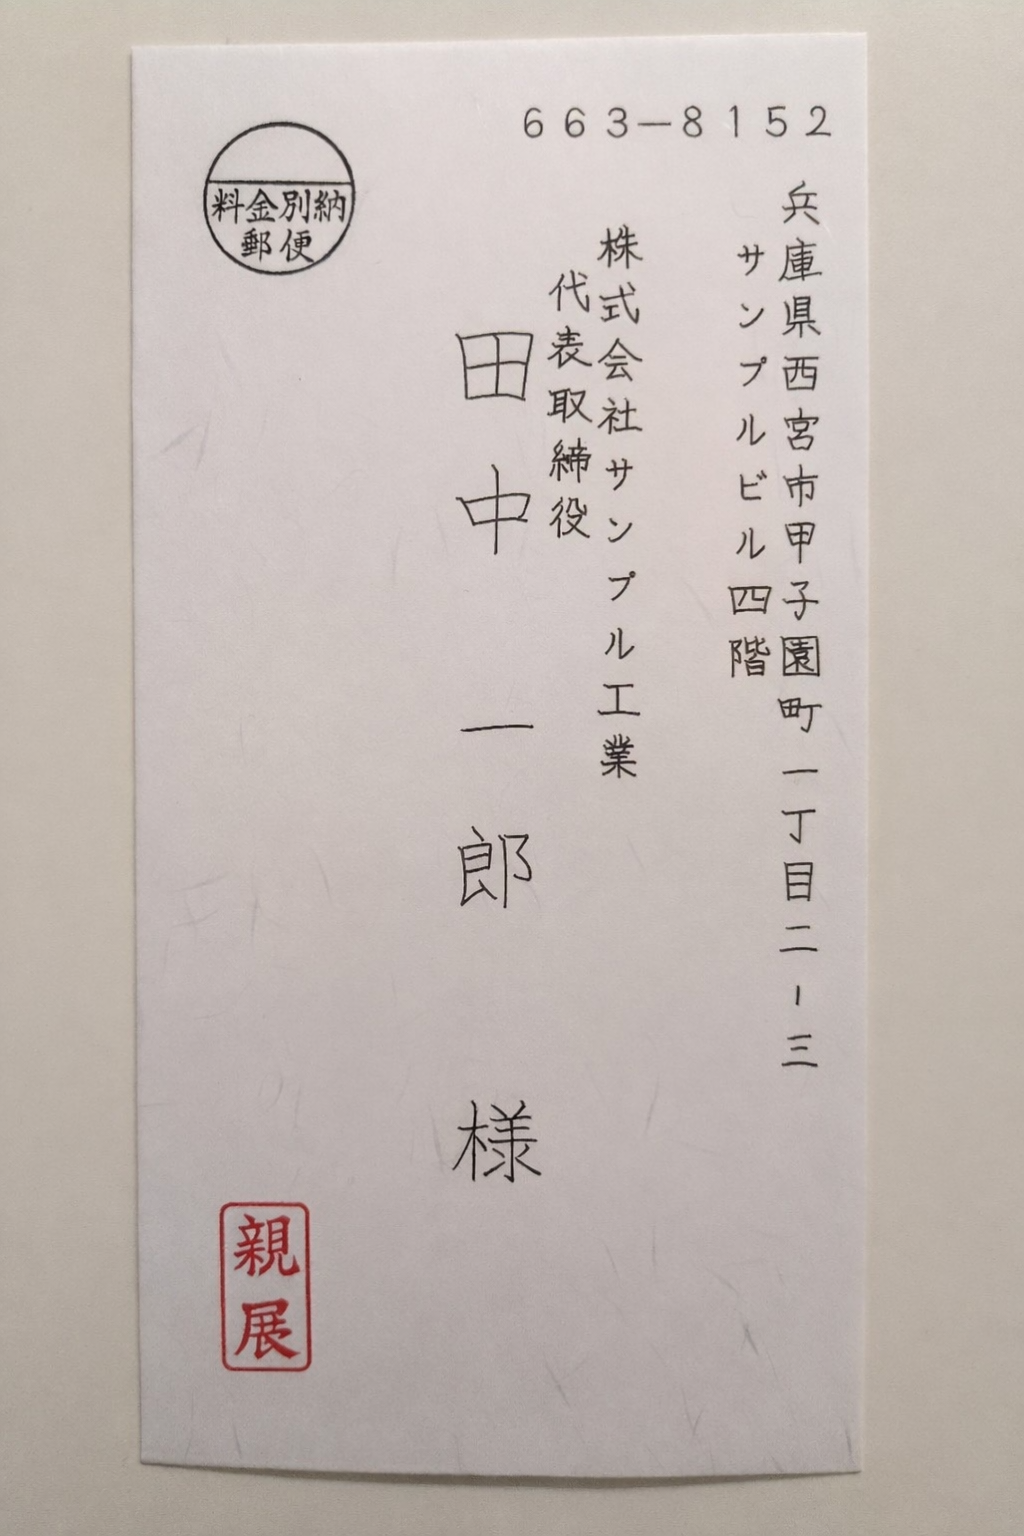 663-8152
兵庫県西宮市甲子園町一丁目二-三
サンプルビル四階
株式会社サンプル工業
代表取締役
田中一郎様
料金別納
郵便
親展